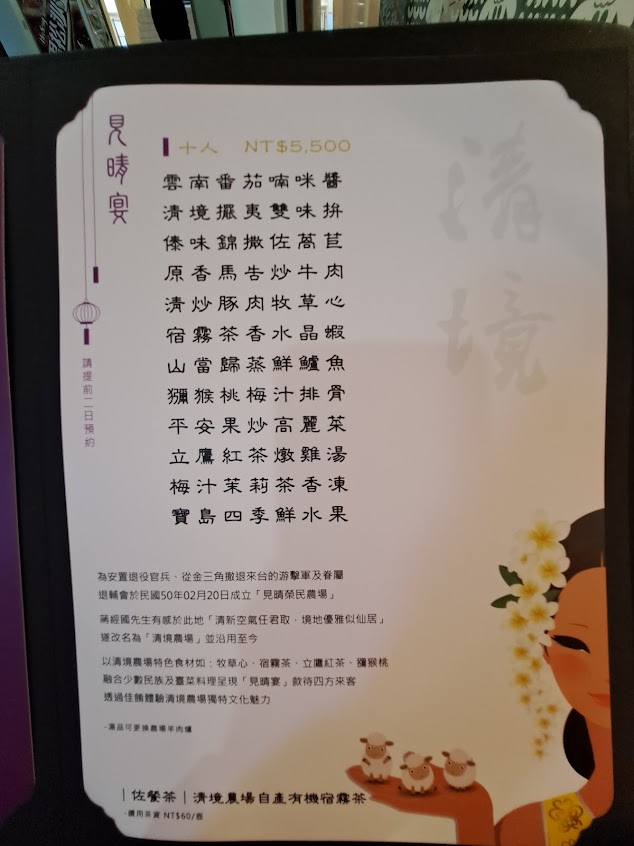 見晴宴
請提前二日預約
十人 NT$5,500
雲南番茄喃咪醬
清境擺夷雙味拚
傣味錦撒佐萵苣
原香馬告炒牛肉
清炒豚肉牧草心
宿霧茶香水晶蝦
山當歸蒸鮮鱸魚
獼猴桃梅汁排骨
平安果炒高麗菜
立鷹紅茶燉雞湯
梅汁茉莉茶香凍
寶島四季鮮水果
清境
為安置退役官兵、從金三角撤退來台的游擊軍及眷屬
退輔會於民國50年02月20日成立「見晴榮民農場」
蔣經國先生有感於此地「清新空氣任君取，境地優雅似仙居」
遂改名為「清境農場」並沿用至今
以清境農場特色食材如：牧草心、宿霧茶、立鷹紅茶、獼猴桃
融合少數民族及臺菜料理呈現「見晴宴」款待四方來客
透過佳餚體驗清境農場獨特文化魅力
-湯品可更換農場羊肉爐
|佐餐茶|清境農場自產有機宿霧茶
-續用茶資 NT$60/壺